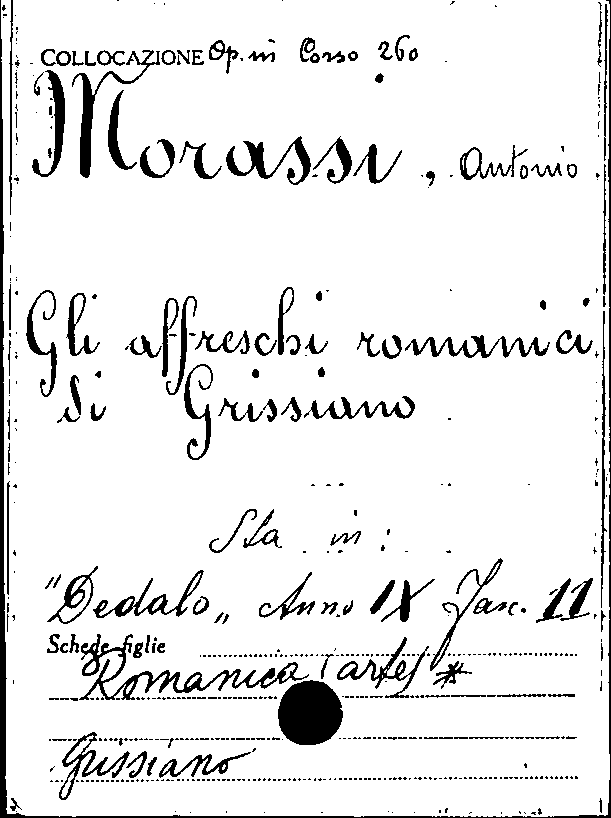 COLLOCAZIONE Op. in Corso 260
Morassi, Antonio
Gli affreschi romanici
di Grissiano
Sta in:
"Dedalo„ Anno IX Fasc. 11
Schede figlie
Romanica (arte) *
Grissiano